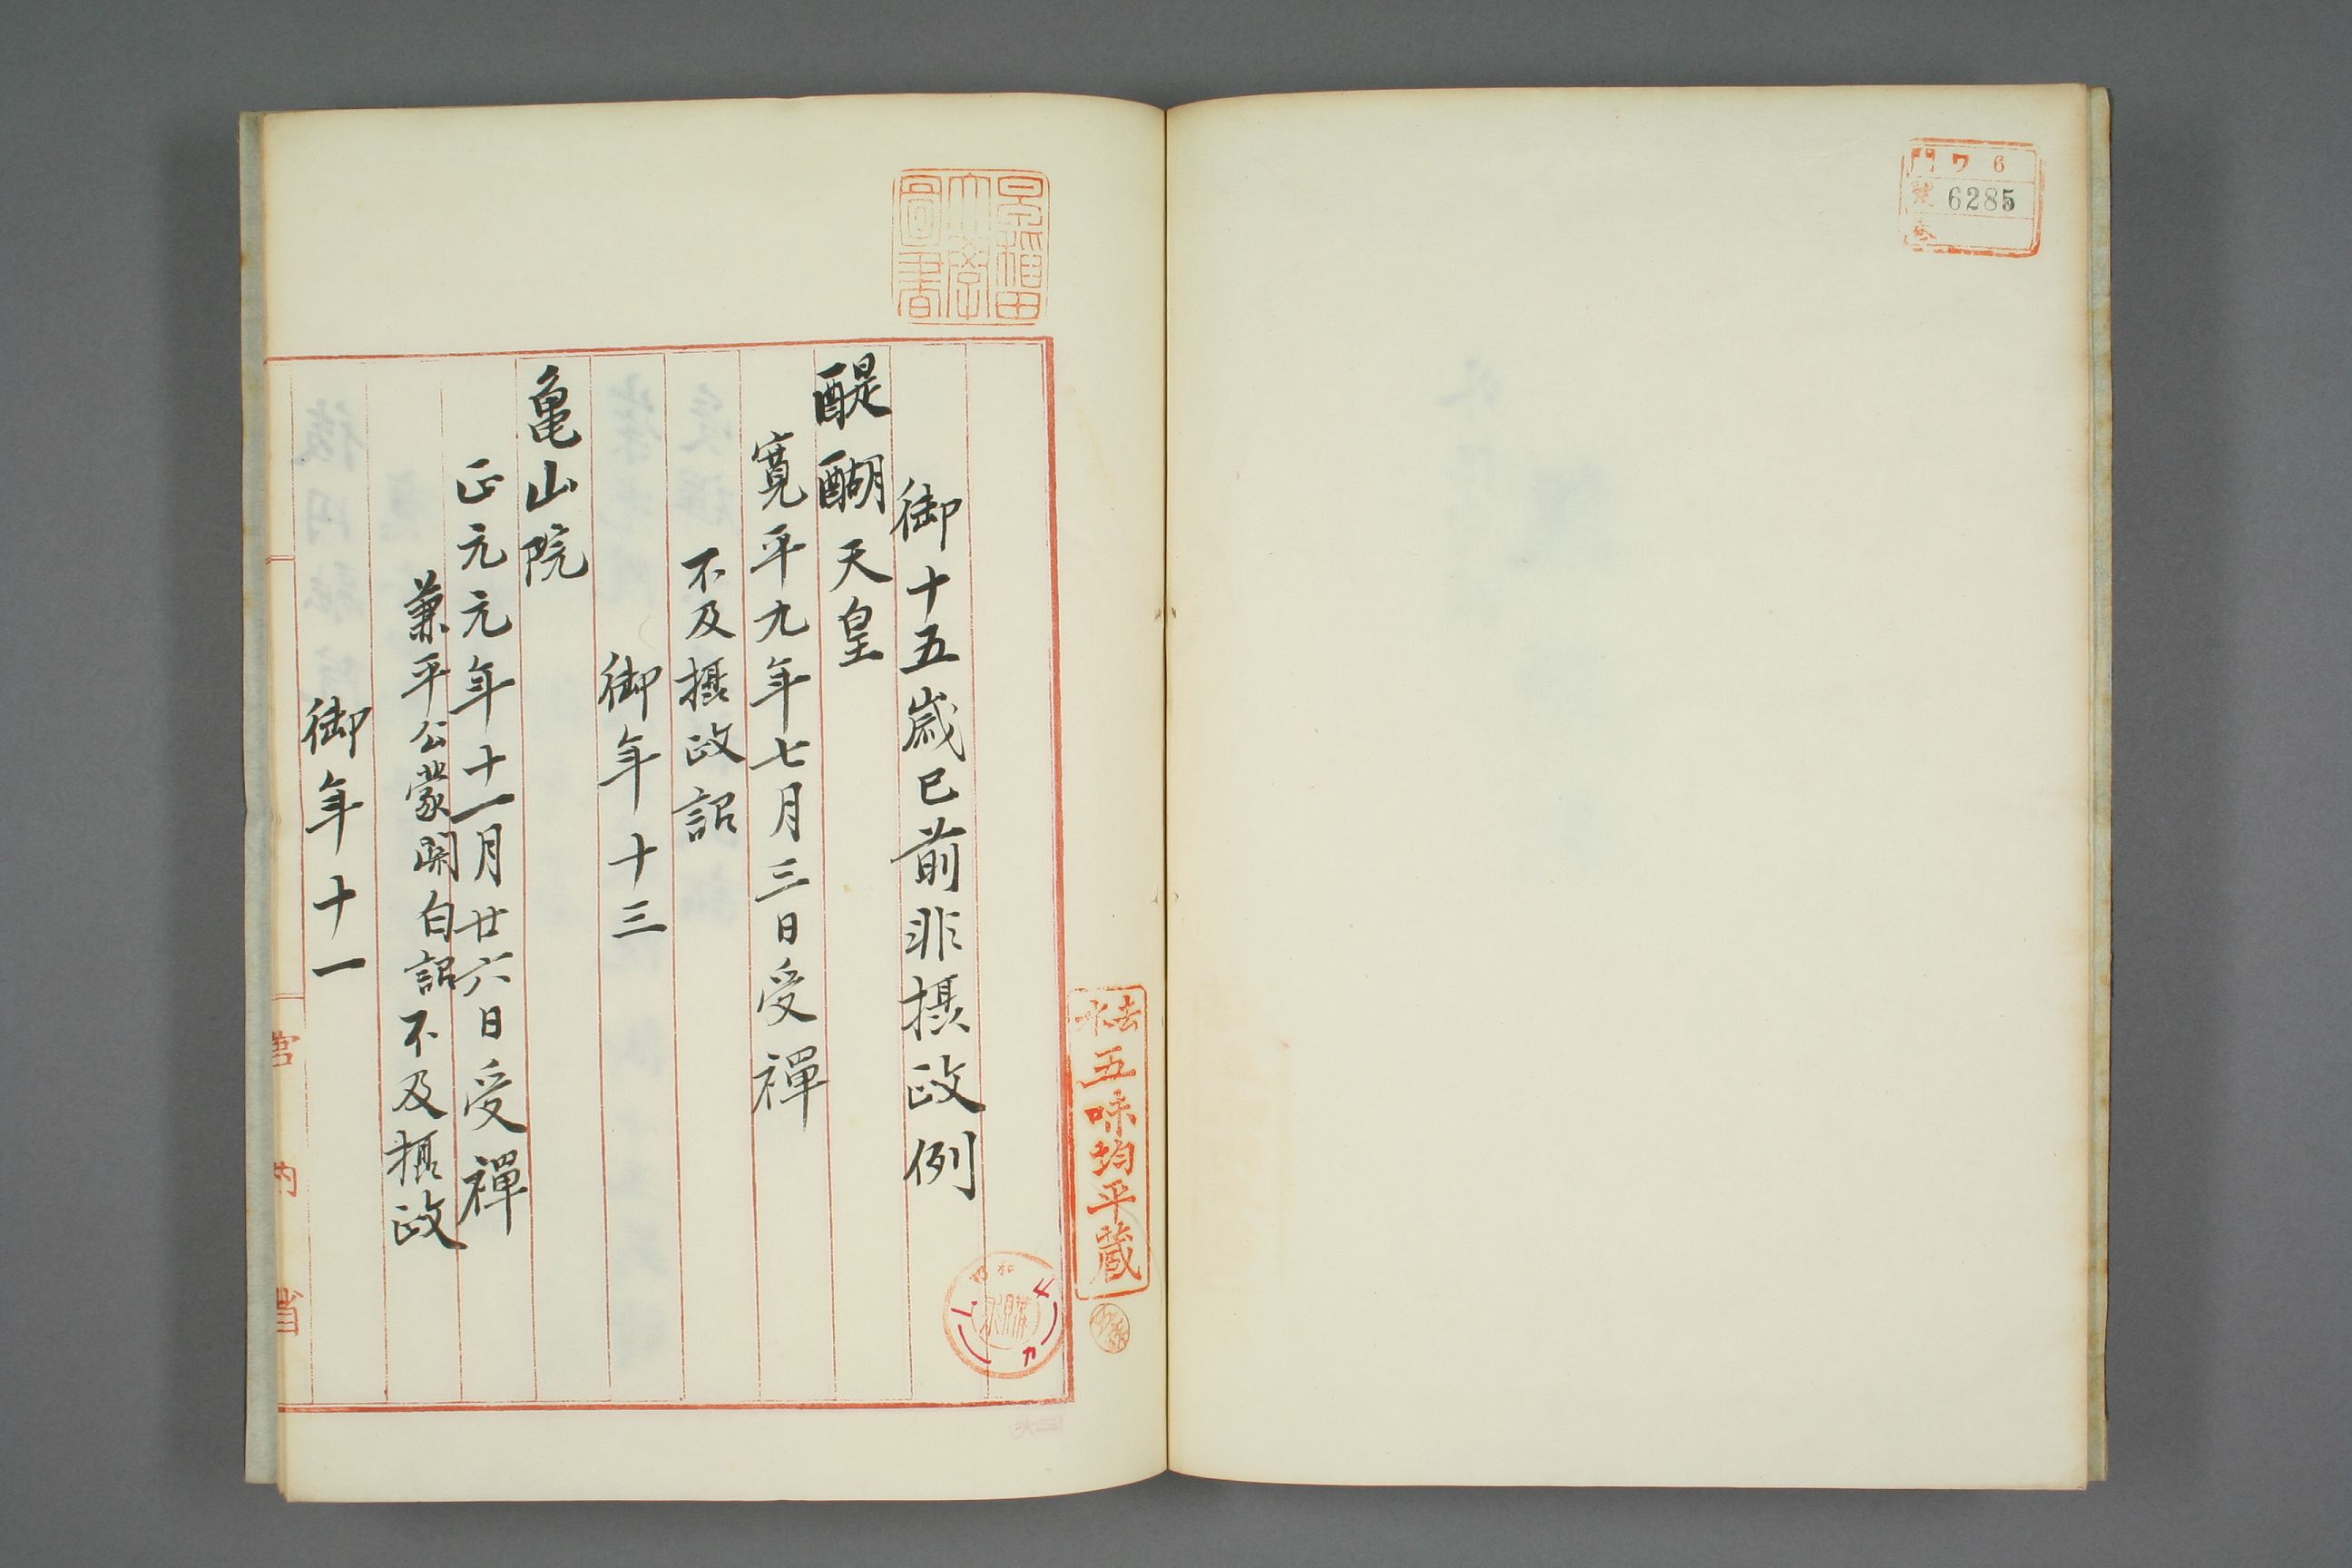 門 ワ 6
號 6285
巻
早稲田
大學
圖書
御十五歳已前非摂政例
醍醐天皇
寛平九年七月三日受禅
不及摂政詔
御年十三
亀山院
正元元年十一月廿六日受禅
兼平公蒙関白詔不及摂政
御年十一
宮内省
五味均平蔵
昭和